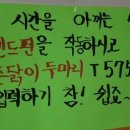 시간을 아끼는
핸드폰을 작동하시고
닭이 두마리 T 575
입력하기 참! 쉽죠~